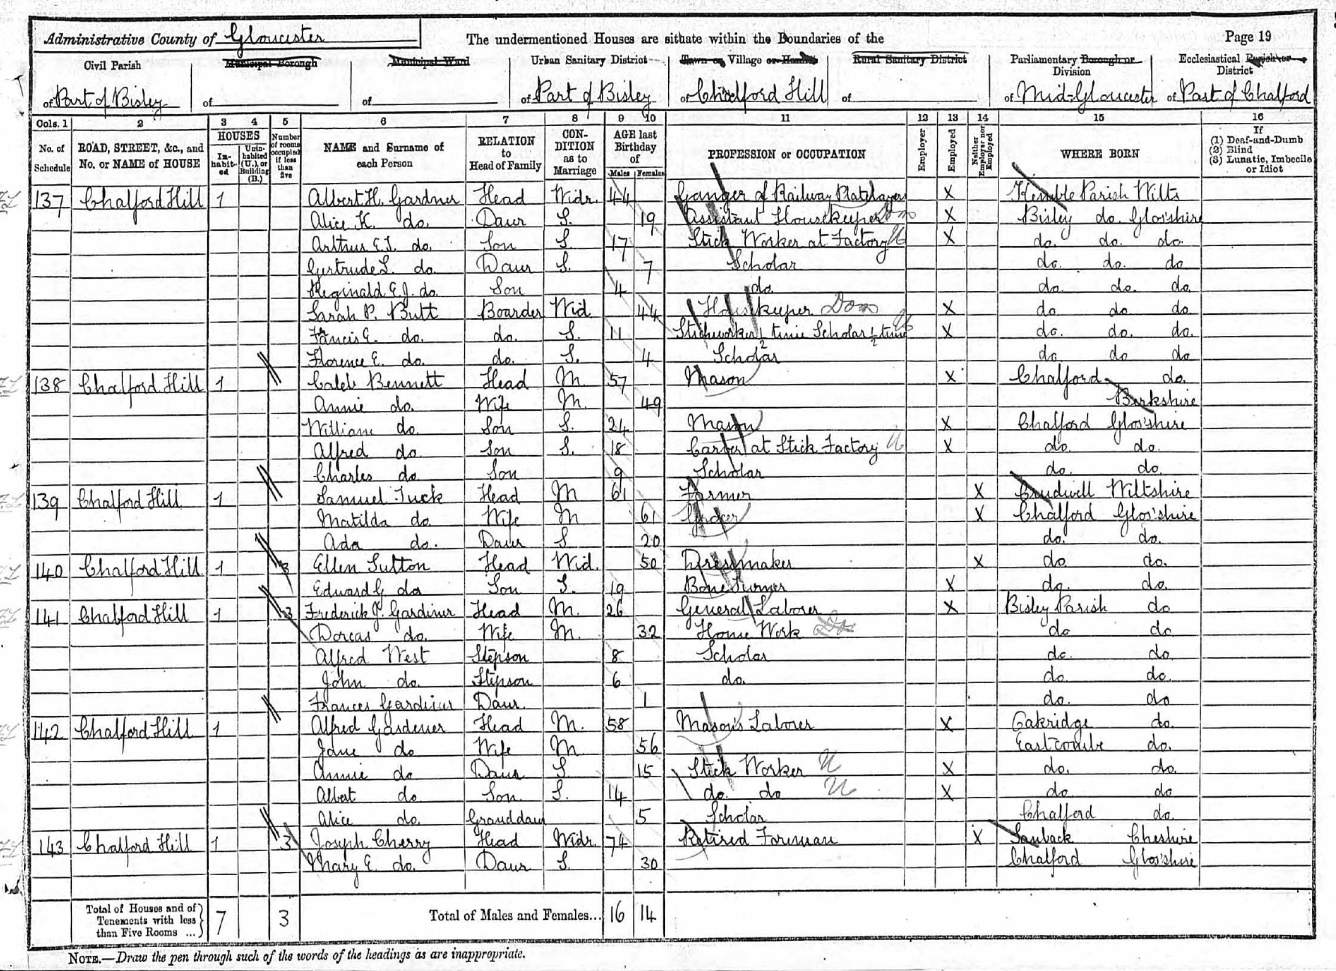 Administrative County of Gloucester The undermentioned Houses are situate within the Boundaries of the Page 19
Civil Parish Municipal Borough Municipal Ward Urban Sanitary District Town or Village or Hamlet Rural Sanitary District Parliamentary Borough or Division Ecclesiastical Parish or District
of Part of Bisley of of of Part of Bisley of Chalford Hill of of Mid-Gloucester of Part of Chalford
Cols. 1 2 3 4 5 6 7 8 9 10 11 12 13 14 15 16
No. of Schedule ROAD, STREET, &c., and No. or NAME of HOUSE HOUSES Inhabited Uninhabited (U.), or Building (B.) Number of rooms occupied if less than five NAME and Surname of each Person RELATION to Head of Family CONDITION as to Marriage AGE last Birthday of Males Females PROFESSION or OCCUPATION Employer Employed Neither Employer nor Employed WHERE BORN If (1) Deaf-and-Dumb (2) Blind (3) Lunatic, Imbecile or Idiot
137 Chalford Hill 1 Albert H. Gardner Head Widr. 44 Ganger of Railway Platelayers X Kemble Parish Wilts
Alice K. do. Daur S. 19 Assistant Housekeeper Dom X Bisley do. Glo'shire
Arthur E.J. do. Son S. 17 Stick Worker at Factory X do. do. do.
Gertrude L. do. Daur S. 7 Scholar do. do. do
Reginald E.J. do. Son 4 do. do. do. do.
Sarah P. Butt Boarder Wid. 44 Housekeeper Dom X do do do.
Francis E. do. do. S. 11 Stickworker ½ time Scholar ½ time X do. do. do.
Florence E. do. do. S. 4 Scholar do do do
138 Chalford Hill 1 Caleb Bennett Head M. 57 Mason X Chalford do.
Annie do. Wife M. 49 Berkshire
William do. Son S. 24 Mason X Chalford Glos'shire
Alfred do. Son S. 18 Carver at Stick Factory X do. do.
Charles do Son 9 Scholar do. do.
139 Chalford Hill 1 Samuel Tuck Head M 61 Farmer X Crudwell Wiltshire
Matilda do. Wife M 61 X Chalford Glos'shire
Ada do. Daur S 20 do. do.
140 Chalford Hill 1 3 Ellen Sutton Head Wid. 50 Dressmaker X do do.
Edward G. do Son S. 19 Bone Turner X do. do.
141 Chalford Hill 1 3 Frederick J. Gardiner Head M. 26 General Laborer X Bisley Parish do
Dorcas do. Wife M. 32 Home Work do do
Alfred West Stepson 8 Scholar do. do.
John do. Stepson 6 do. do. do.
Frances Gardiner Daur. 1 do. do
142 Chalford Hill 1 Alfred Gardener Head M. 58 Mason's Laborer X Oakridge do.
Jane do Wife M 56 Eastcombe do.
Annie do Daur S 15 Stick Worker X do. do.
Albert do Son S. 14 do do X do do
Alice do. Granddaur 5 Scholar Chalford do.
143 Chalford Hill 1 3 Joseph Cherry Head Widr. 74 Retired Foreman X Cheshire
Mary E. do. Daur S. 30 Chalford Glos'shire
Total of Houses and of Tenements with less than Five Rooms ... 7 3 Total of Males and Females... 16 14
NOTE.—Draw the pen through such of the words of the headings as are inappropriate.